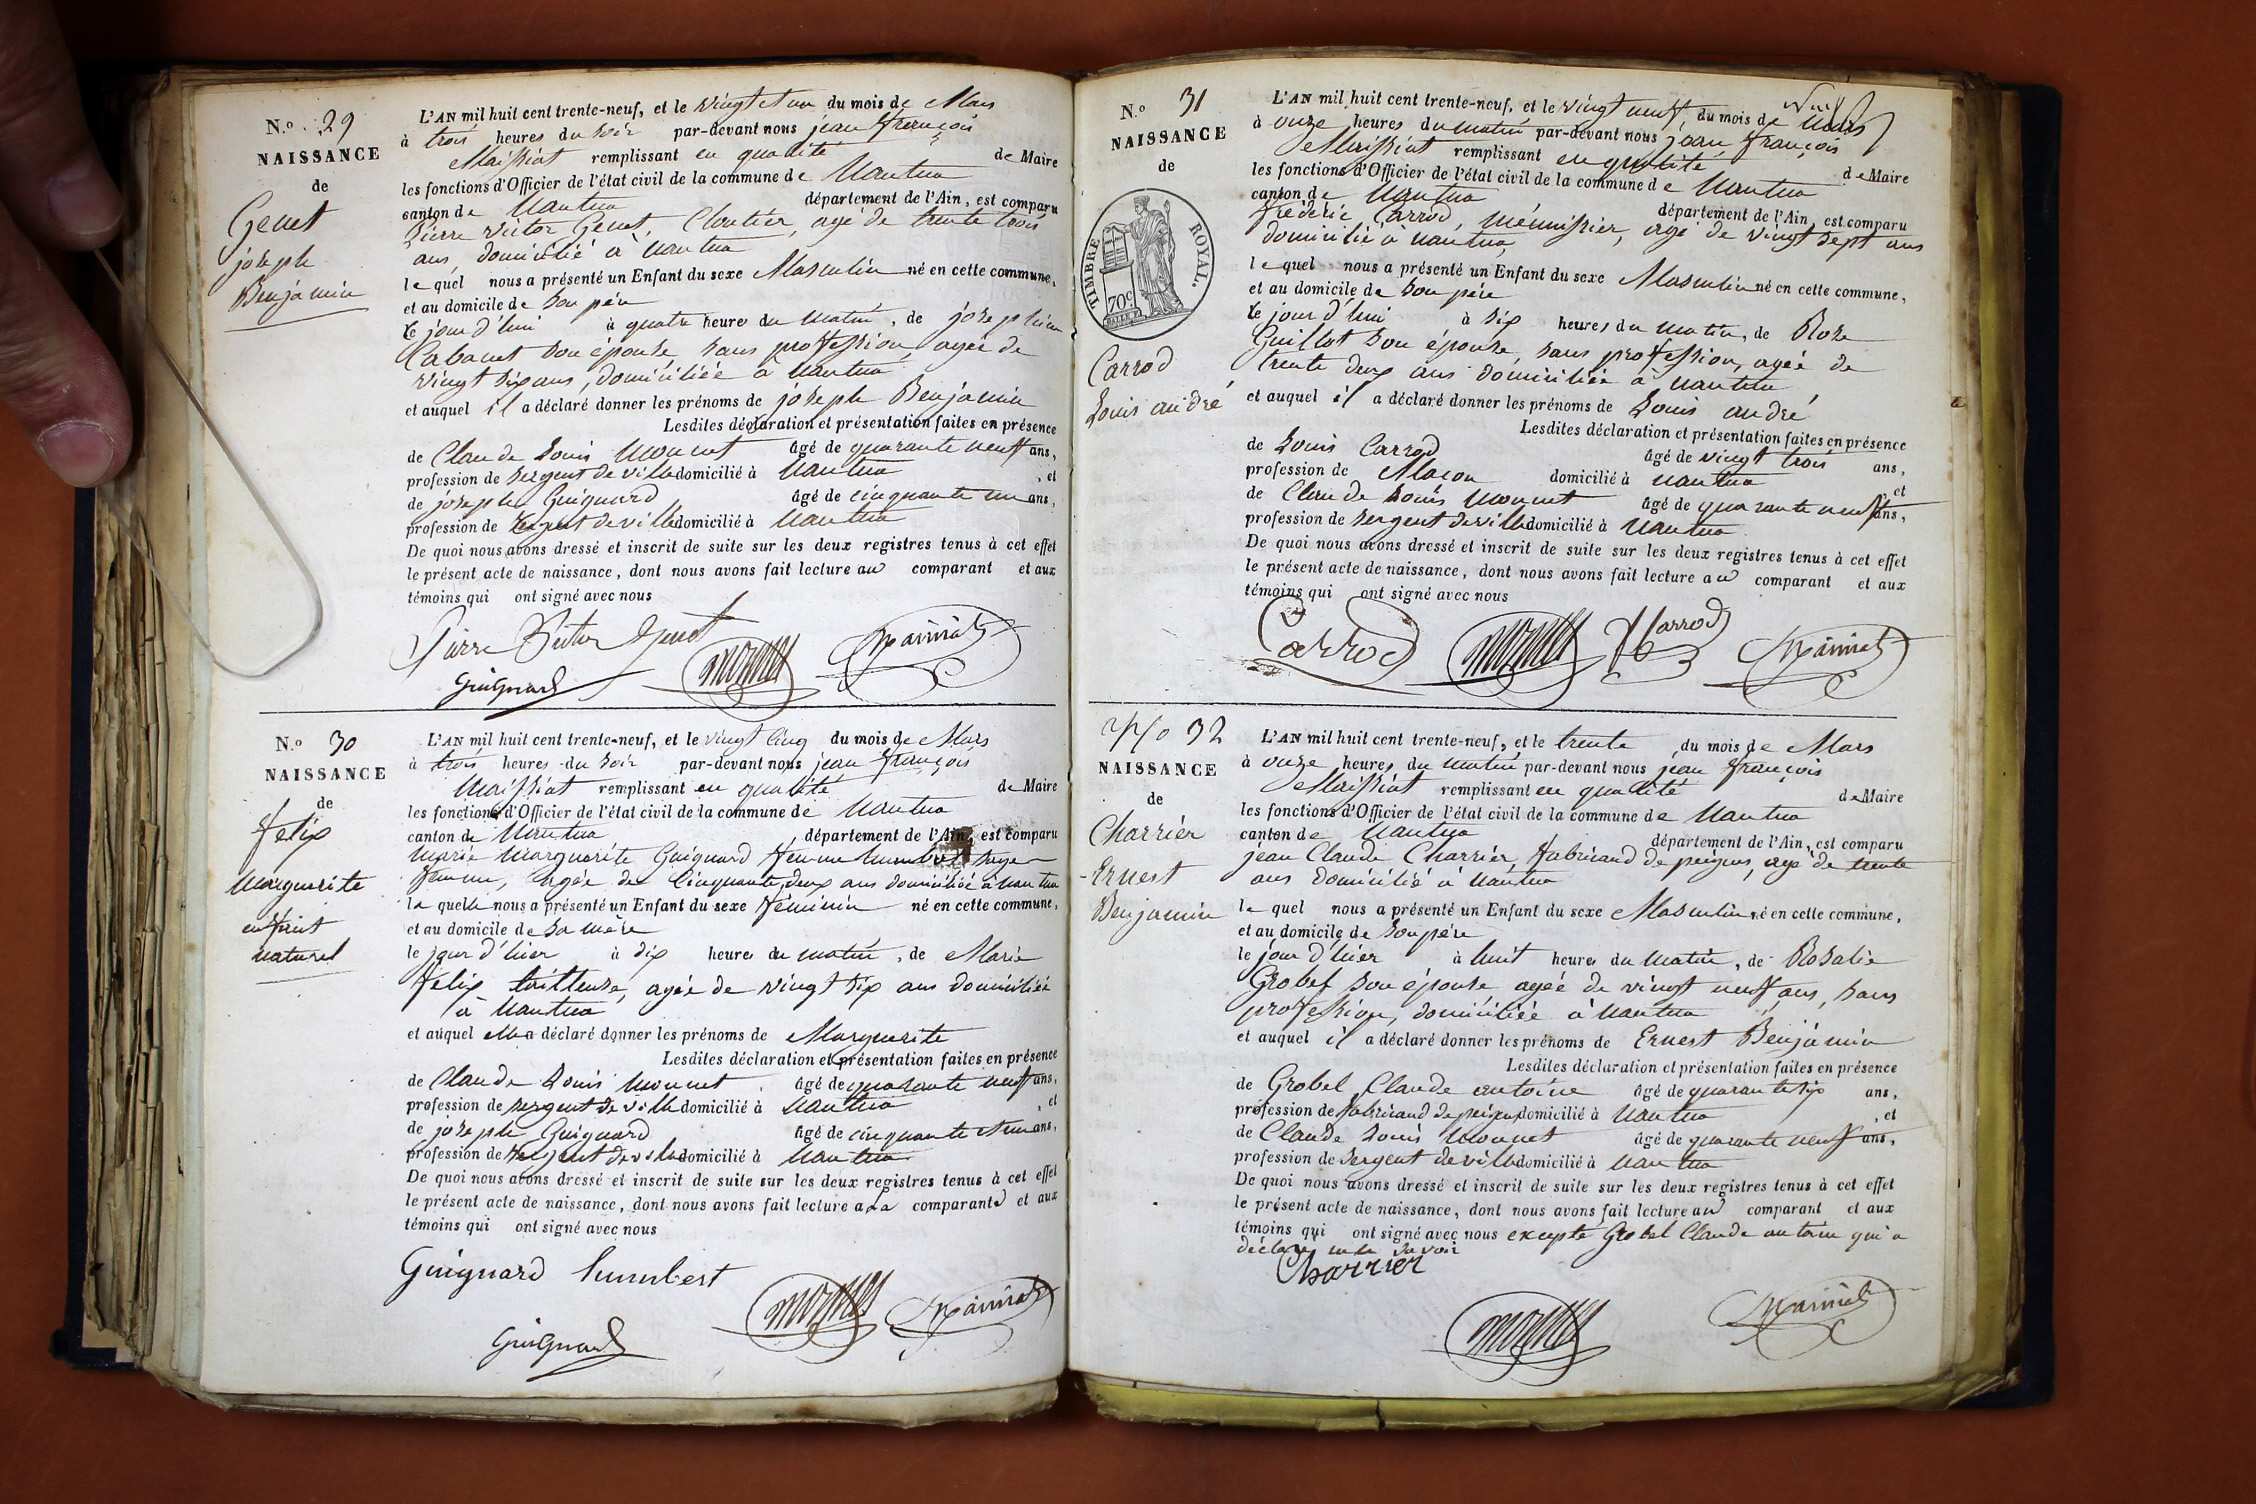 N.o 29
NAISSANCE
de
Genet
joseph
Benjamin
L'AN mil huit cent trente-neuf, et le vingt et un du mois de Mars
à trois heures du soir par-devant nous jean françois
Maissiat remplissant en qualité de Maire
les fonctions d'Officier de l'état civil de la commune de Nantua
canton de Nantua département de l'Ain, est comparu
Pierre victor Genet, Cloutier, agé de trente trois
ans, domicilié à Nantua
le quel nous a présenté un Enfant du sexe Masculin né en cette commune,
et au domicile de son père
le jour d'hui à quatre heures du matin, de joséphine
Cabanet son épouse, sans profession, agée de
vingt six ans, domiciliée à Nantua
et auquel il a déclaré donner les prénoms de joseph Benjamin
Lesdites déclaration et présentation faites en présence
de Claude Louis Monnet âgé de quarante neuf ans,
profession de sergent de ville domicilié à Nantua, et
de joseph Guignard âgé de cinquante un ans,
profession de sergent de ville domicilié à Nantua
De quoi nous avons dressé et inscrit de suite sur les deux registres tenus à cet effet
le présent acte de naissance, dont nous avons fait lecture au comparant et aux
témoins qui ont signé avec nous
Pierre Victor Genet
Monnet
Maissiat
Guignard
N.o 30
NAISSANCE
de
felix
Marguerite
enfant
naturel
L'AN mil huit cent trente-neuf, et le vingt cinq du mois de Mars
à trois heures du soir par-devant nous jean françois
Maissiat remplissant en qualité de Maire
les fonctions d'Officier de l'état civil de la commune de Nantua
canton de Nantua département de l'Ain, est comparu
Marie Marguerite Guignard femme humbert sage
femme, agée de Cinquante deux ans domiciliée à Nantua
la quelle nous a présenté un Enfant du sexe féminin né en cette commune,
et au domicile de sa mère
le jour d'hier à dix heures du matin, de Marie
felix tailleuse, agée de vingt six ans domiciliée
à Nantua
et auquel elle a déclaré donner les prénoms de Marguerite
Lesdites déclaration et présentation faites en présence
de Claude Louis Monnet âgé de quarante neuf ans,
profession de sergent de ville domicilié à Nantua, et
de joseph Guignard âgé de cinquante et un ans,
profession de sergent de ville domicilié à Nantua
De quoi nous avons dressé et inscrit de suite sur les deux registres tenus à cet effet
le présent acte de naissance, dont nous avons fait lecture a la comparante et aux
témoins qui ont signé avec nous
Guignard humbert
Monnet
Maissiat
Guignard
N.o 31
NAISSANCE
de
TIMBRE ROYAL.
70c
Carrod
Louis andré
L'AN mil huit cent trente-neuf, et le vingt neuf, du mois de Mars
à onze heures du matin par-devant nous jean françois
Maissiat remplissant en qualité de Maire
les fonctions d'Officier de l'état civil de la commune de Nantua
canton de Nantua département de l'Ain, est comparu
frédéric Carrod, ménuissier, agé de vingt sept ans
domicilié à Nantua,
le quel nous a présenté un Enfant du sexe Masculin né en cette commune,
et au domicile de son père
le jour d'hui à six heures du matin, de Rose
Guillot son épouse, sans profession, agée de
trente deux ans domiciliée à Nantua
et auquel il a déclaré donner les prénoms de Louis andré
Lesdites déclaration et présentation faites en présence
de Louis Carrod âgé de vingt trois ans,
profession de Maçon domicilié à Nantua, et
de Claude Louis Monnet âgé de quarante neuf ans,
profession de sergent de ville domicilié à Nantua
De quoi nous avons dressé et inscrit de suite sur les deux registres tenus à cet effet
le présent acte de naissance, dont nous avons fait lecture au comparant et aux
témoins qui ont signé avec nous
Carrod
Monnet
Carrod
Maissiat
No 32
NAISSANCE
de
Charrier
Ernest
Benjamin
L'AN mil huit cent trente-neuf, et le trente du mois de Mars
à onze heures du matin par-devant nous jean françois
Maissiat remplissant en qualité de Maire
les fonctions d'Officier de l'état civil de la commune de Nantua
canton de Nantua département de l'Ain, est comparu
jean Claude Charrier, fabricand de peignes, agé de trente
ans domicilié à Nantua
le quel nous a présenté un Enfant du sexe Masculin né en cette commune,
et au domicile de son père
le jour d'hier à huit heures du matin, de Rosalie
Grobel son épouse agée de vingt neuf ans, sans
profession, domiciliée à Nantua
et auquel il a déclaré donner les prénoms de Ernest Benjamin
Lesdites déclaration et présentation faites en présence
de Grobel Claude antoine âgé de quarante six ans,
profession de fabricand de peignes domicilié à Nantua, et
de Claude Louis Monnet âgé de quarante neuf ans,
profession de sergent de ville domicilié à Nantua
De quoi nous avons dressé et inscrit de suite sur les deux registres tenus à cet effet
le présent acte de naissance, dont nous avons fait lecture au comparant et aux
témoins qui ont signé avec nous excepté Grobel Claude antoine qui a
déclaré ne le savoir
Charrier
Monnet
Maissiat